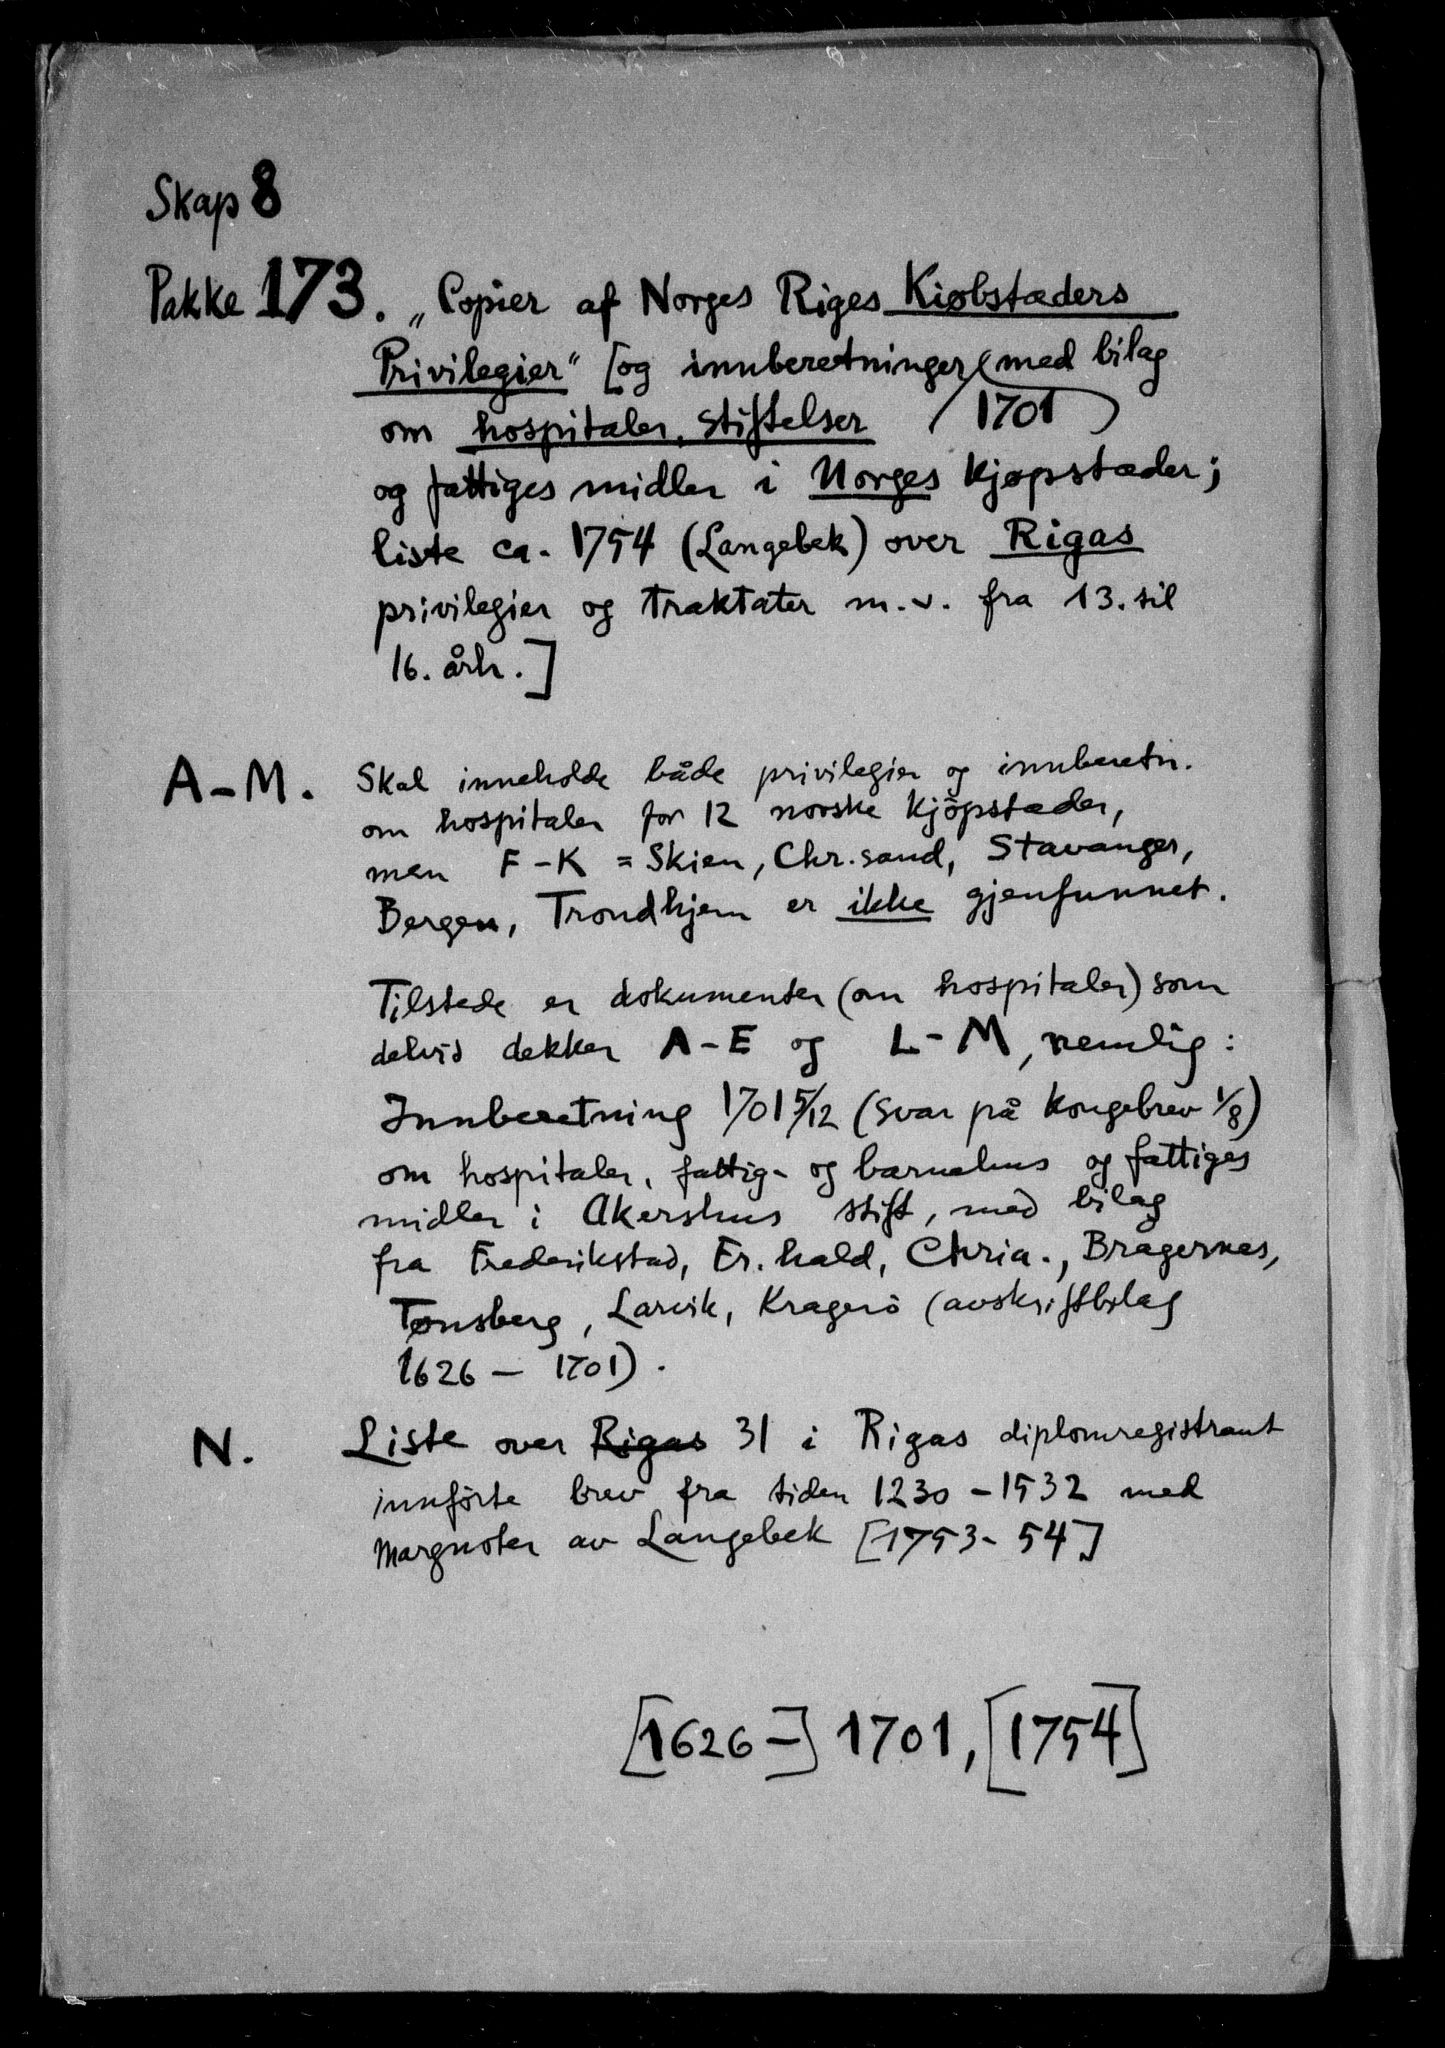 Skap 8
Pakke 173. „Copier af Norges Riges Kiøbstæders
Privilegier" [og innberetninger med bilag
om hospitaler, stiftelser (1701)
og fattiges midler i Norges kjøpstæder;
liste ca. 1754 (Langebek) over Rigas
privilegier og traktater m.v. fra 13. til
16. årh.]
A-M. Skal inneholde både privilegier og innberetn.
om hospitaler for 12 norske kjöpstæder,
men F-K = Skien, Chr.sand, Stavanger,
Bergen, Trondhjem er ikke gjenfunnet.
Tilstede er dokumenter (om hospitaler) som
delvis dekker A-E og L-M, nemlig:
Innberetning 1701 5/12 (svar på kongebrev 1/8)
om hospitaler, fattig- og barnehus og fattiges
midler i Akershus stift, med bilag
fra Frederikstad, Fr.hald, Chria., Bragernes,
Tønsberg, Larvik, Kragerö (avskriftbilag
1626 - 1701).
N. Liste over Rigas 31 i Rigas diplomregistrant
innförte brev fra tiden 1230 - 1532 med
margnoter av Langebek [1753-54]
[1626-] 1701, [1754]